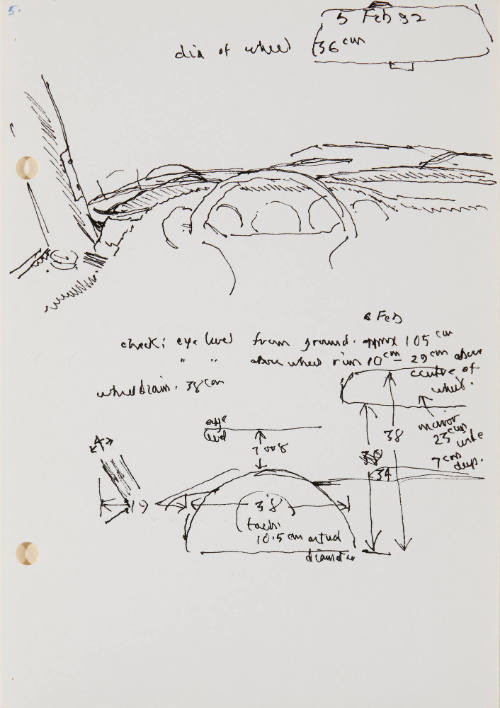 5.
5 Feb 92
dia of wheel 36 cm
8 Feb
check: eye level from ground. approx 105 cm
" " above wheel rim 10 cm - 29 cm above
centre of
wheel.
wheel diam. 38 cm
eye
level
mirror
23 cm wide
7 cm
deep.
38
34
A
19
38
tach:
10.5 cm actual
diameter